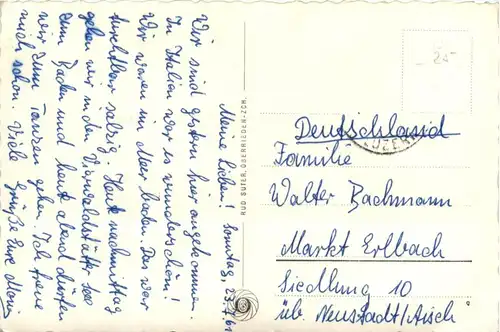 Meine Lieben! Sonntag, 23.7.61
Wir sind gestern hier angekommen.
In Italien war es wunderschön!
Wir waren im Meer baden. Das war
furchtbar salzig. Heute nachmittag
gehen wir in den Vierwaldstätter See
zum Baden und heute abend dürfen
wir zum Tanzen gehen. Ich freue
mich schon. Viele Grüße Eure
RUD. SUTER, OBERRIEDEN-ZCH.
25-
Deutschland
Familie
Walter Bachmann
Markt Erlbach
Siedlung 10
üb. Neustadt/Aisch